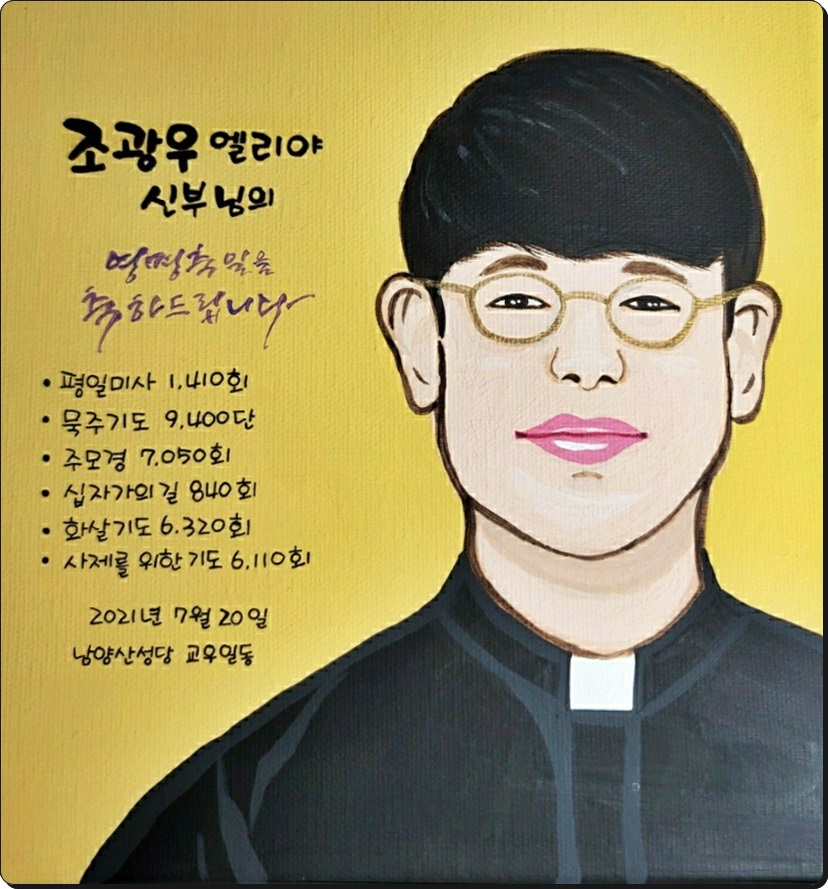 조광우 엘리야
신부님의
영명축일을
축하드립니다
• 평일미사 1,410회
• 묵주기도 9,400단
• 주모경 7,050회
• 십자가의 길 840회
• 화살기도 6,320회
• 사제를 위한 기도 6,110회
2021년 7월 20일
남양산성당 교우일동